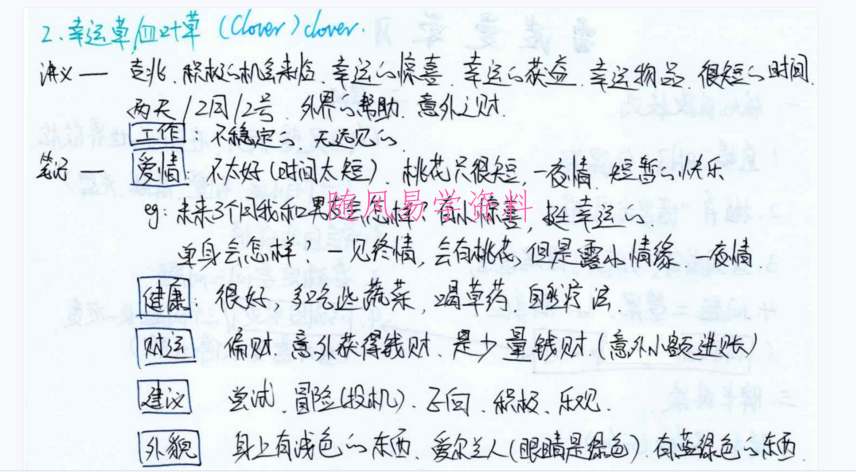 2.幸运草/四叶草 (Clover) clover.
讲义 — 吉兆、积极的机会来临、幸运的惊喜、幸运的获益、幸运物品 很短的时间、
两天/2周/2号 外界的帮助、意外之财.
工作: 不稳定的、无远见的
笔记 爱情 不太好(时间太短), 桃花只很短, 一夜情、短暂的快乐
随风易学资料
eg: 未来3个月我和男友会怎样? 有小惊喜, 挺幸运的.
单身会怎样? 一见终情, 会有桃花, 但是露水情缘、一夜情
健康: 很好, 多吃些蔬菜, 喝草药、自然疗法.
财运 偏财、意外获得钱财、是少量钱财(意外小额进账)
建议 尝试、冒险(投机)、积极、乐观.
外貌 身上有浅色的东西、爱尔兰人(眼睛是绿色)、有蓝绿色的东西.